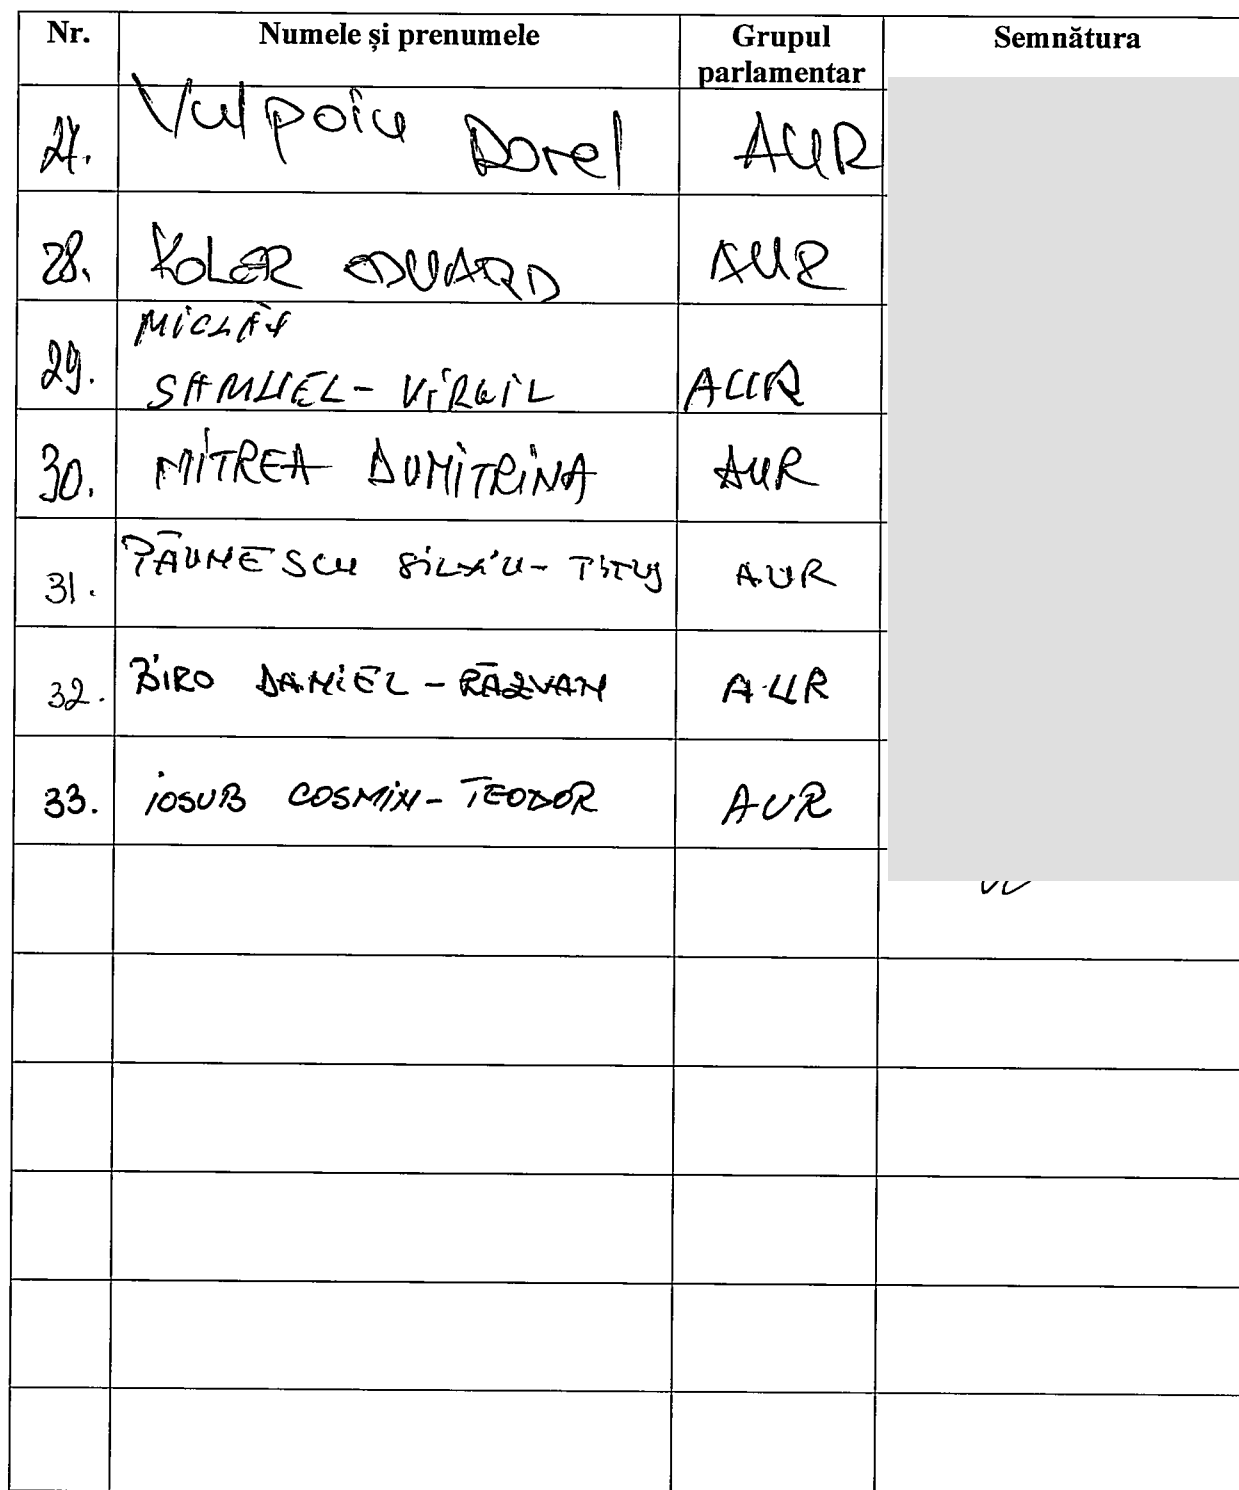 Nr. Numele și prenumele Grupul parlamentar Semnătura
27. Vulpoiu Dorel AUR
28. KOLER EDUARD AUR
MICLĂU
29. SAMUEL-VIRGIL AUR
30. MITREA DUMITRINA AUR
31. PĂUNESCU SILVIU-TITUS AUR
32. BIRO DANIEL-RĂZVAN AUR
33. IOSUB COSMIN-TEODOR AUR